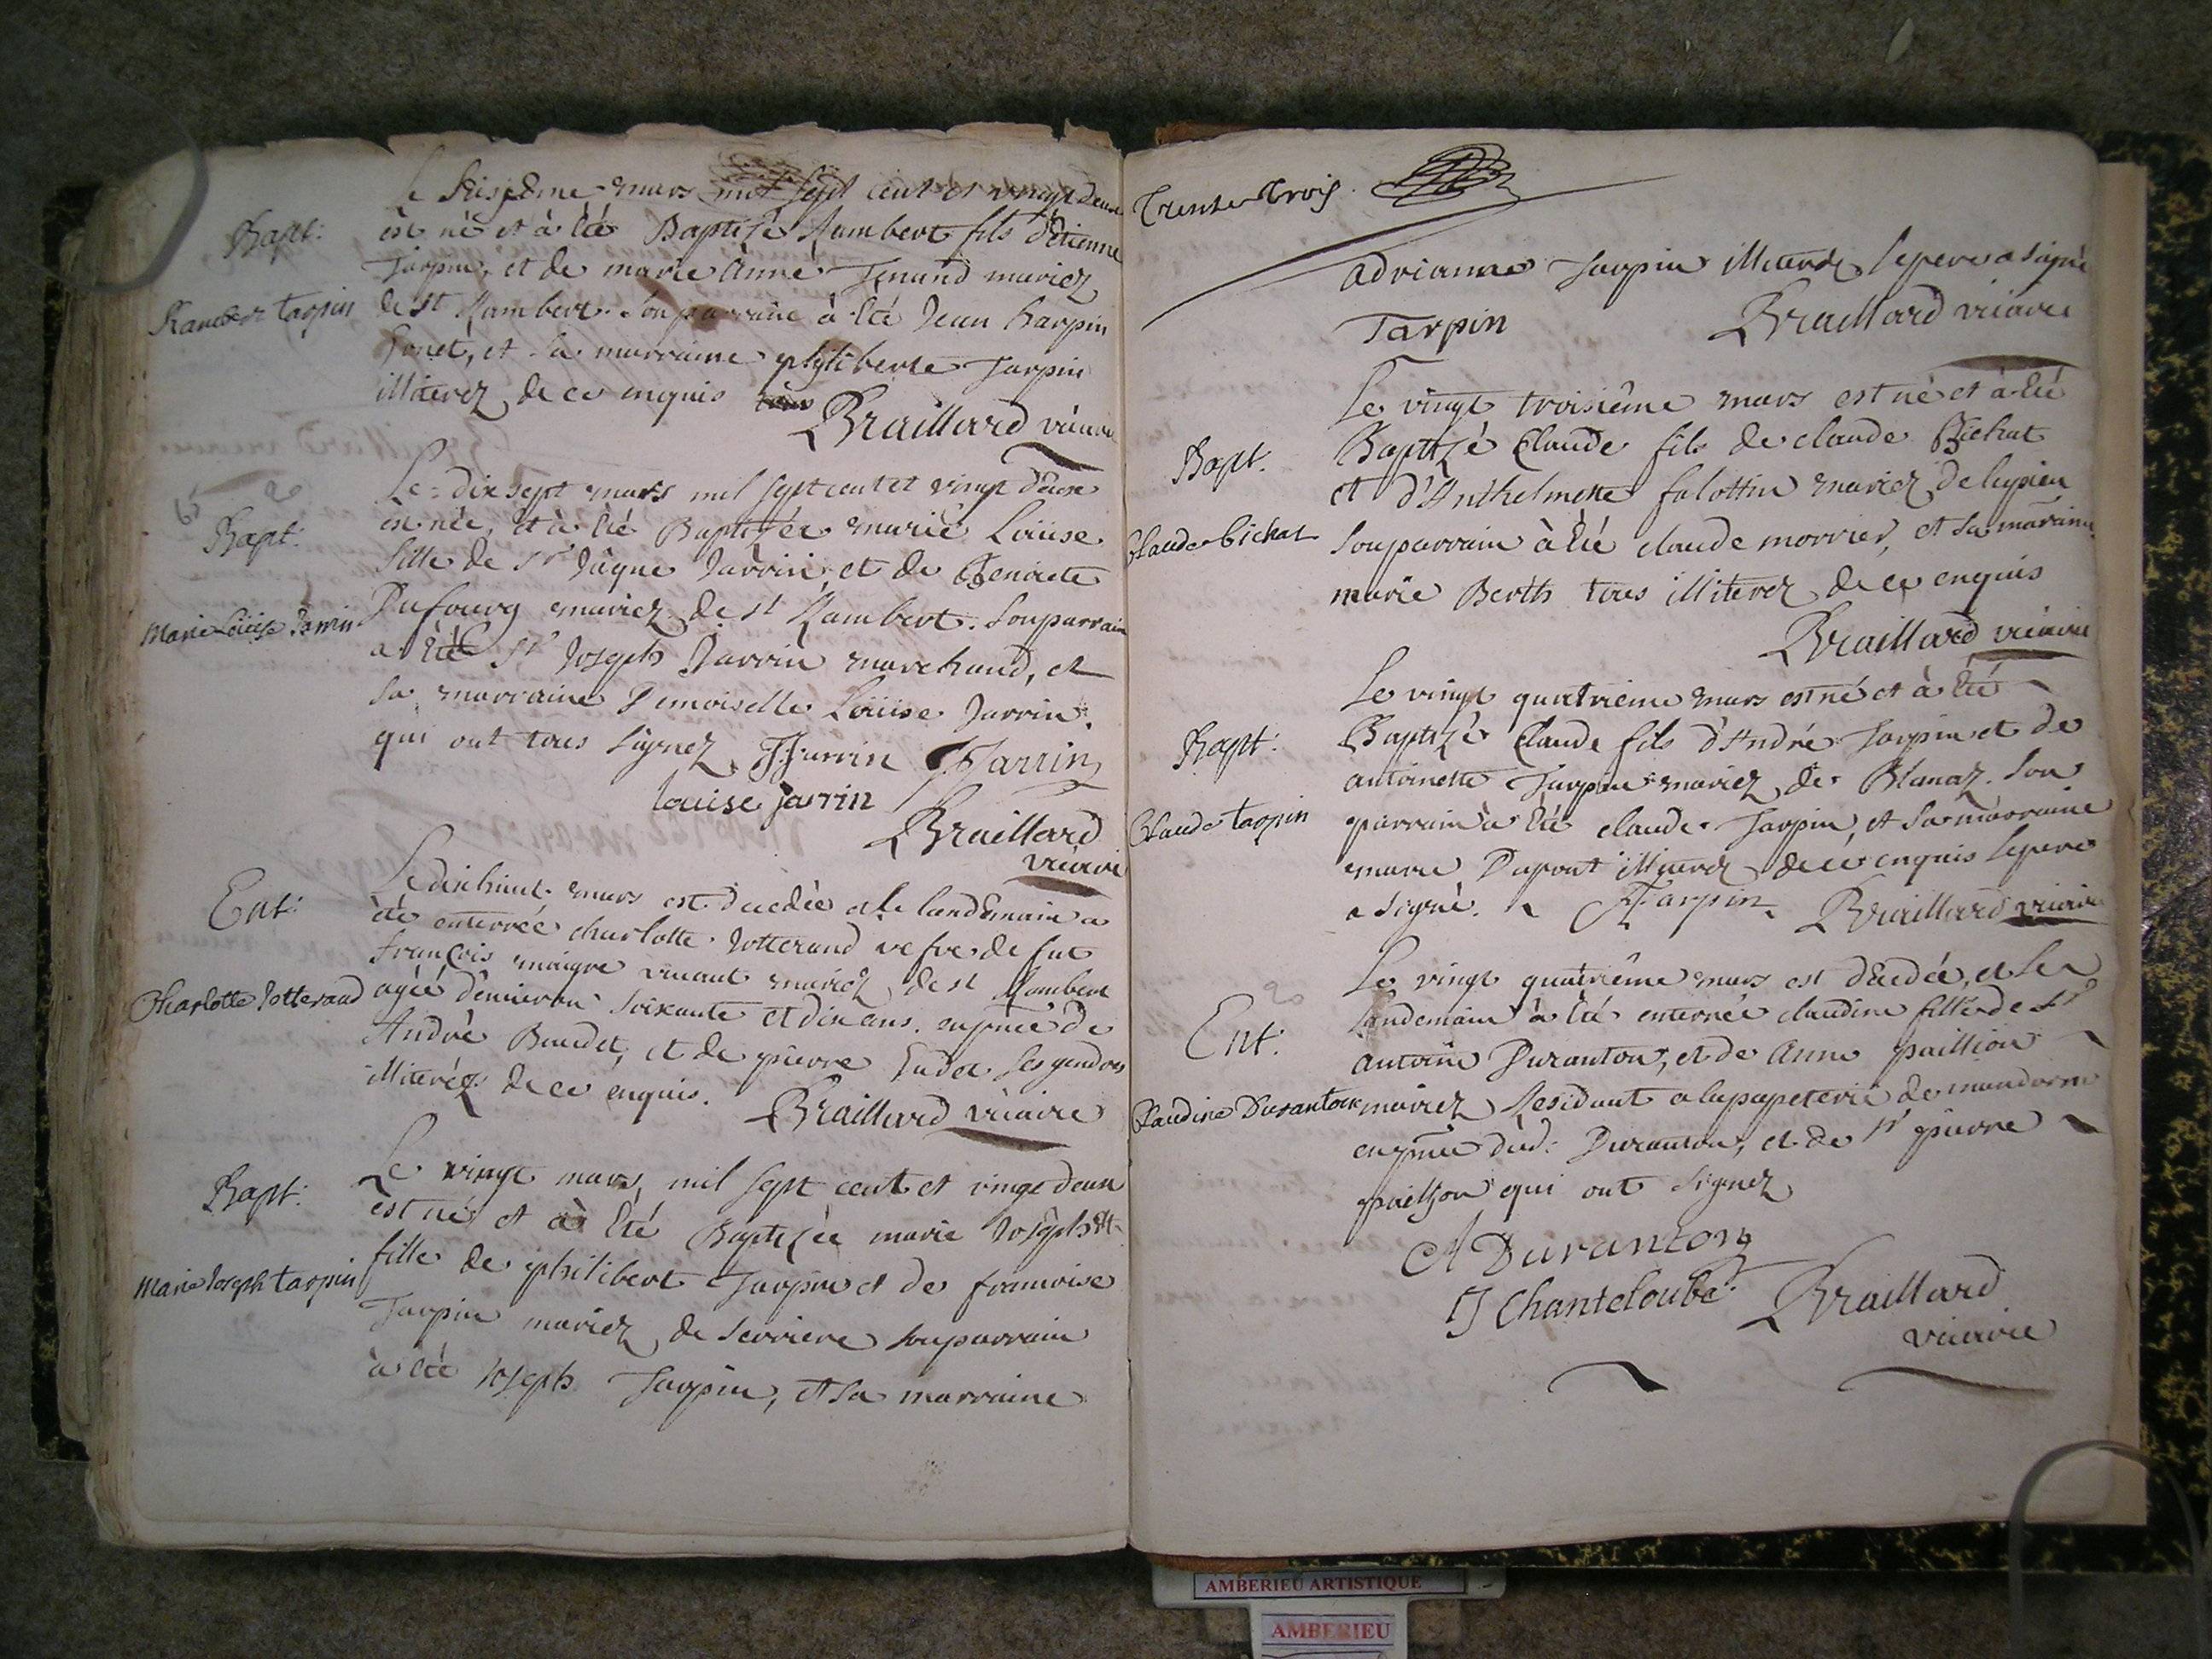 Bapt:
Rambert tarpin
Le seizieme mars mil sept cent et vingt deux
est né et à été Baptizé Rambert fils d'Etienne
Tarpin, et de marie Anne mariez
de st Rambert. Son parraine à été Jean Harpin
et sa marraine philiberte Tarpin
illiterez de ce enquis
Braillard vicaire
Bapt:
Marie Loüise Jarrin
Le dix sept mars mil sept cent et vingt deux
est née, et à été Baptizée marie Loüise
fille de Sr Jâque Jarrin et de
Dufourg mariez de st Rambert. Son parrain
a été Sr Joseph Jarrin marchand, et
sa marraine Demoiselle Loüise Jarrin.
qui ont tous signez JJarrin JJarrin
louise jarrin
Braillard
vicaire
Ent:
Charlotte Jotterand
Le dix huit mars est decedée et le landemain a
été enterrée charlotte Jotterand vefve de fut
françois maigre vivant mariez de st Rambert
agée d'environ soixante et dix ans. en pnce de
André Baudet, et de pierre ses gendres
illiteréz de ce enquis. Braillard vicaire
Bapt:
Marie Joseph tarpin
Le vingt mars mil sept cent et vingt deux
est né et à été Baptizée marie Joseph
fille de philibert Tarpin et de francoise
Tarpin mariez de Serriere son parrain
à été Joseph Tarpin, et sa marraine
Trente Trois.
Adrianne Tarpin illiterez le pere a signé
Tarpin Braillard vicaire
Bapt.
Claude bichat
Le vingt troisiême mars est né et à été
Baptizé Claude fils de claude Bichat
et d'Anthelmette falottin mariez de lupieu
son parrain à été claude morrier, et sa marraine
marie Berth tous illiterez de ce enquis
Braillard vicaire
Bapt:
Claude tarpin
Le vingt quatrieme mars est né et à été
Baptizé Claude fils d'André Tarpin et de
antoinette Tarpin mariez de Blanaz. Son
parrain à été claude Tarpin, et sa marraine
marie Dupont illiterez de ce enquis le pere
a signé. Tarpin Braillard vicaire
Ent:
Claudine Duranton
Le vingt quatriême mars est decedée, et le
landemain à été enterrée claudine fille de Sr
antoine Duranton, et de Anne paillion
mariez residant a la papeterie de
en pnce dud: Duranton, et de Sr pierre
qui ont signez
A Duranton
J Chanteloube Braillard
vicaire
AMBERIEU ARTISTIQUE
AMBERIEU